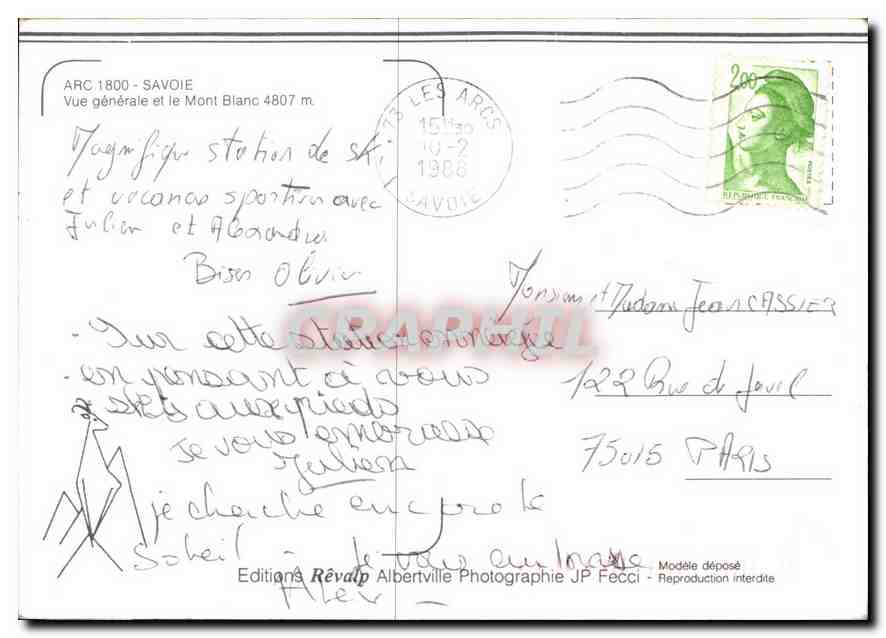 ARC 1800 - SAVOIE
Vue générale et le Mont Blanc 4807 m.
73 LES ARCS
15H30
10-2
1986
SAVOIE
2,00
POSTES
REPUBLIQUE FRANCAISE
Magnifique station de ski
et vacances sportives avec
Julien et Alexandre.
Bises Olivier
- Sur cette station enneigée
- en pensant à vous
skis aux pieds
je vous embrasse
Julien
je cherche encore le
Soleil - je vous embrasse
Alex -
Monsieur et Madame Jean CASSIER
122 Rue de Javel
75015 PARIS
CRAPHIL
Editions Rêvalp Albertville Photographie JP Fecci - Modèle déposé
Reproduction interdite